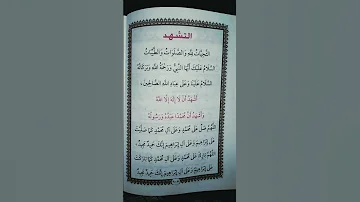 التشهد
التَّحِيَّاتُ لِلَّهِ وَالصَّلَوَاتُ وَالطَّيِّبَاتُ
السَّلَامُ عَلَيْكَ أَيُّهَا النَّبِيُّ وَرَحْمَةُ اللَّهِ وَبَرَكَاتُهُ
السَّلَامُ عَلَيْنَا وَعَلَى عِبَادِ اللَّهِ الصَّالِحِينَ،
أَشْهَدُ أَنْ لَا إِلَهَ إِلَّا اللَّهُ
وَأَشْهَدُ أَنَّ مُحَمَّدًا عَبْدُهُ وَرَسُولُهُ
اللَّهُمَّ صَلِّ عَلَى مُحَمَّدٍ وَعَلَى آلِ مُحَمَّدٍ كَمَا صَلَّيْتَ
عَلَى إِبْرَاهِيمَ وَعَلَى آلِ إِبْرَاهِيمَ إِنَّكَ حَمِيدٌ مَجِيدٌ
اللَّهُمَّ بَارِكْ عَلَى مُحَمَّدٍ وَعَلَى آلِ مُحَمَّدٍ كَمَا بَارَكْتَ
عَلَى إِبْرَاهِيمَ وَعَلَى آلِ إِبْرَاهِيمَ إِنَّكَ حَمِيدٌ مَجِيدٌ